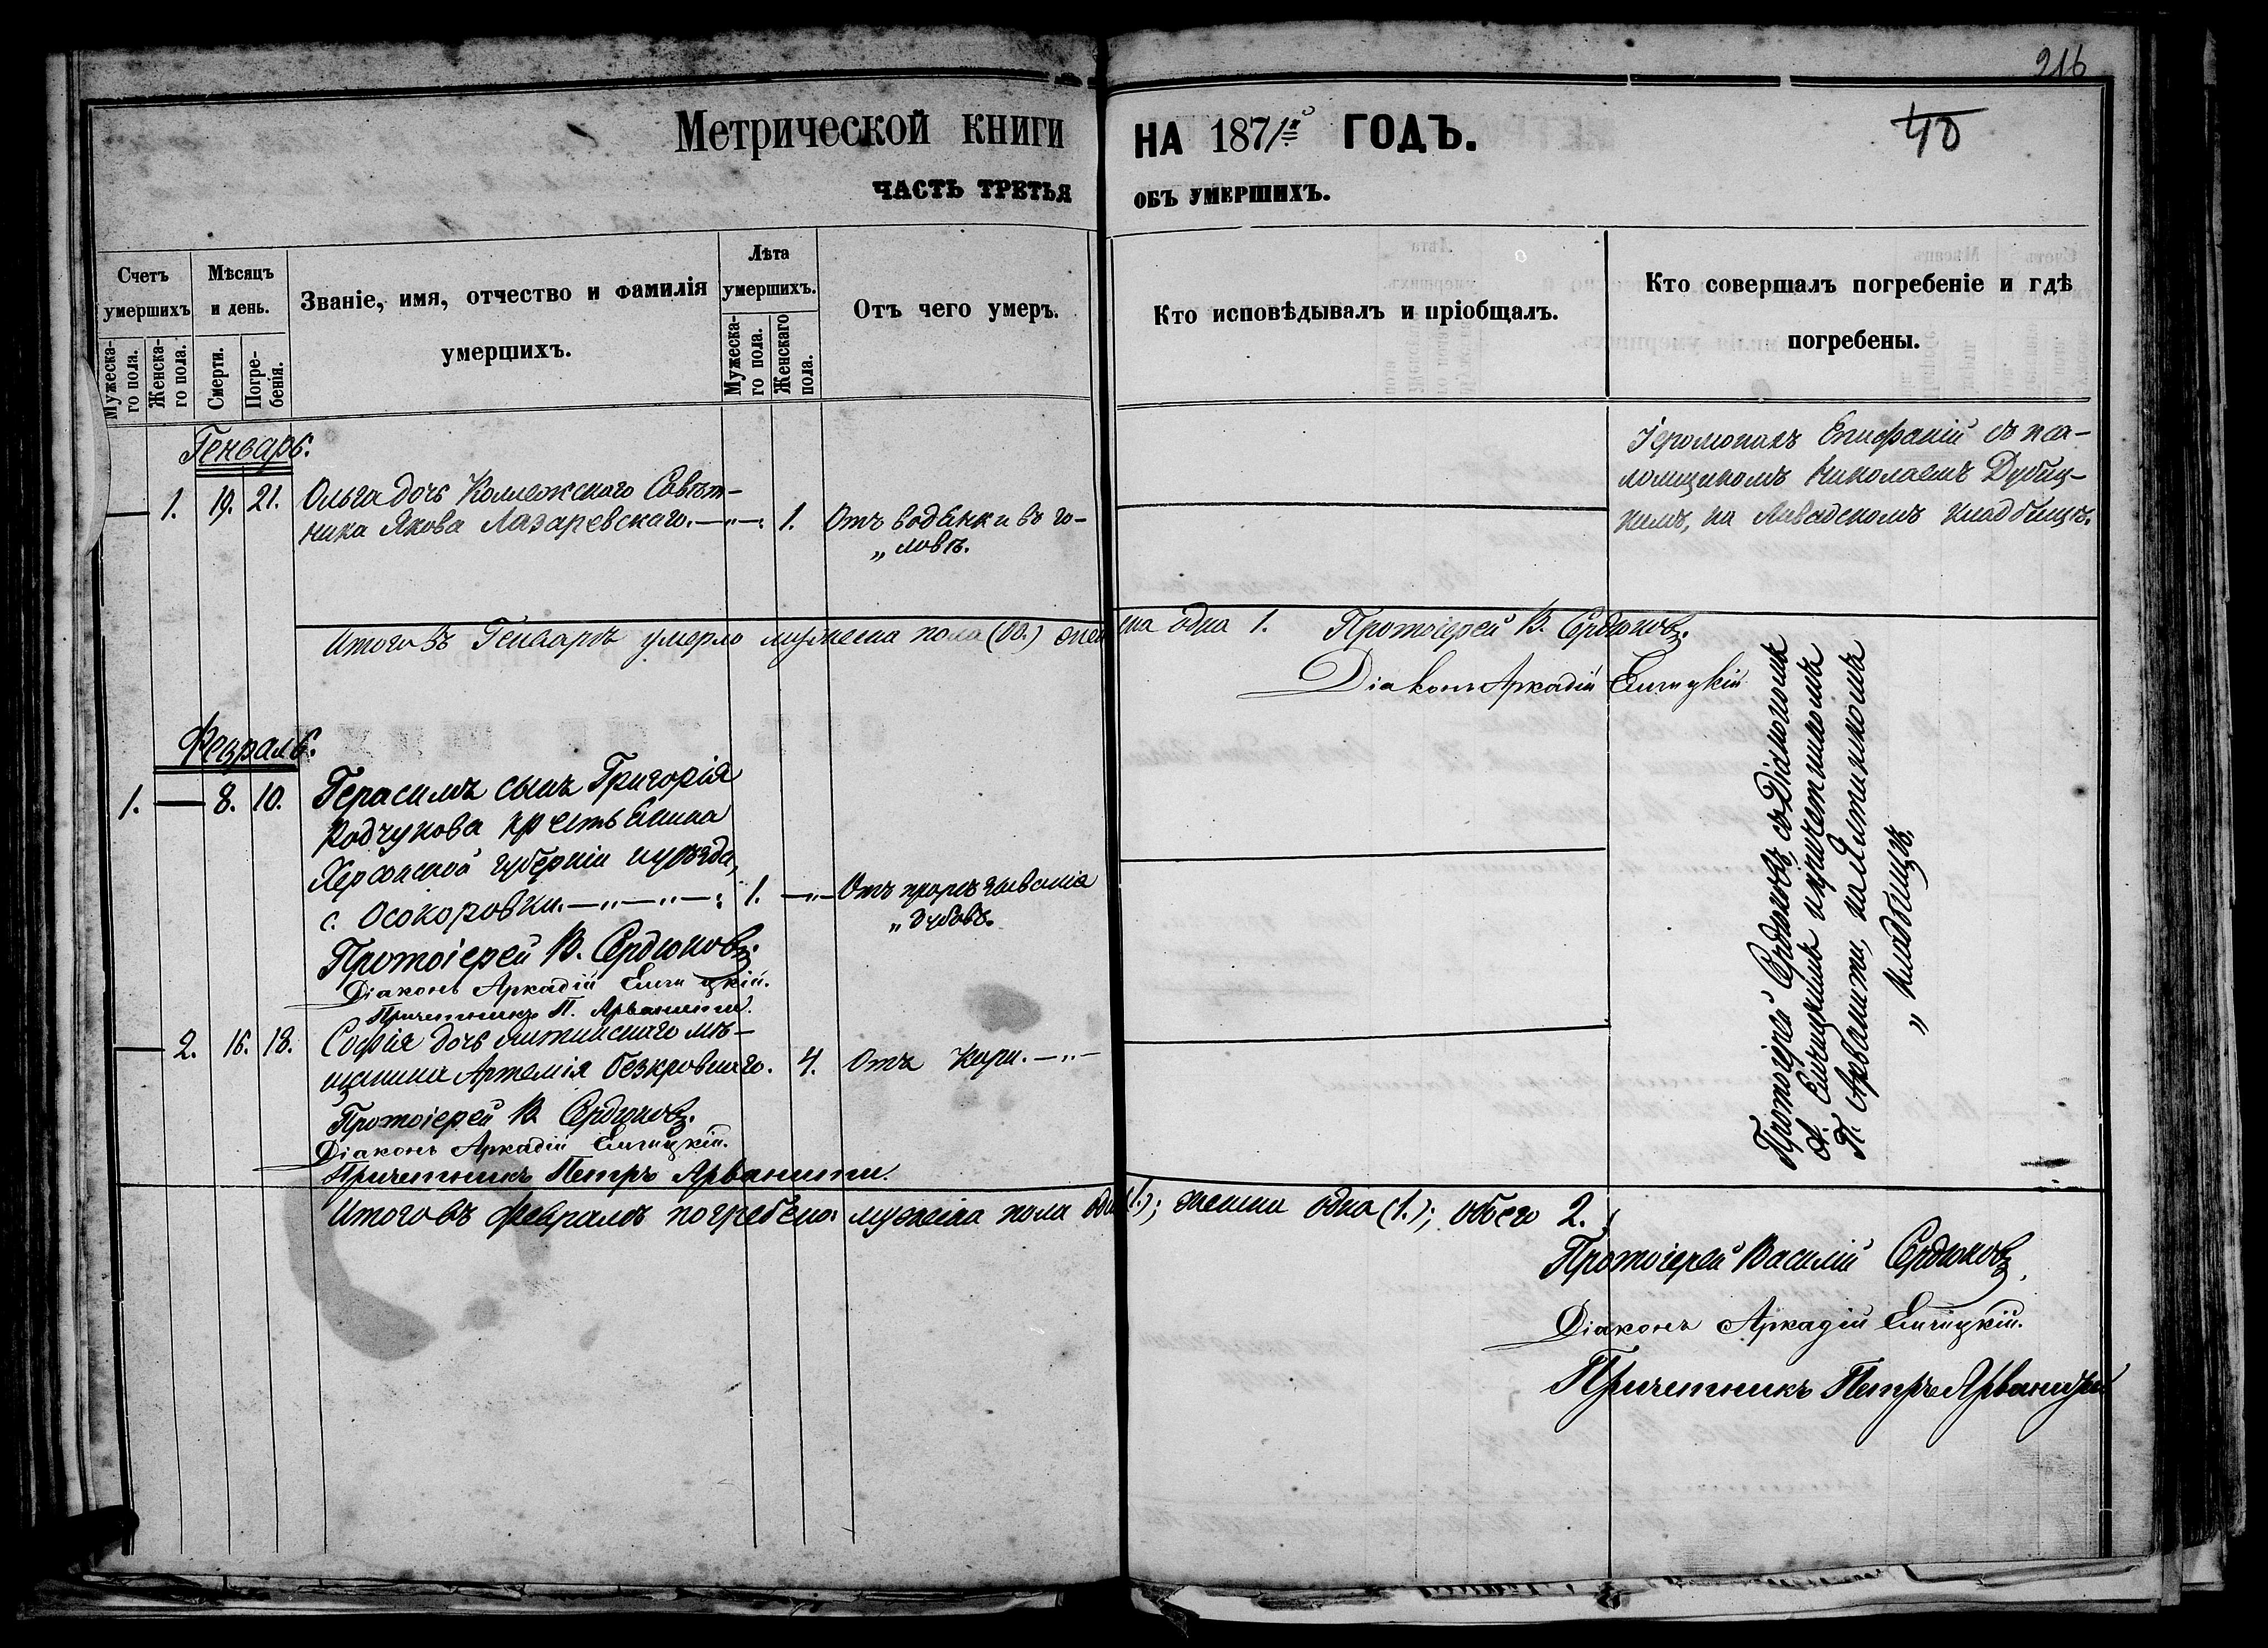 216
40
Метрической книги на 1871й годъ.
часть третья объ умершихъ.
Счетъ умершихъ
Мужеска-
го пола.
Женска-
го пола.
Мѣсяцъ и день.
Смерти.
Погре-
бенія.
Званіе, имя, отчество и фамилія
умершихъ.
Лѣта
умершихъ.
Мужеска-
го пола.
Женскаго
пола.
Отъ чего умеръ.
Кто исповѣдывалъ и пріобщалъ.
Кто совершалъ погребеніе и гдѣ
погребены.
Генварь.
— 1. 19. 21. Ольга дочь Коллежскаго Совѣт-
ника Якова Лазаревскаго. —„—. 1. Отъ водянки въ го-
„ ловѣ.
Іеромонахъ Епифаній съ пса-
ломщикомъ Николаемъ Дубиц-
кимъ, на Ливадскомъ кладбищѣ.
Итого въ Генварѣ умерло мужеска пола (00.) женска одна 1. Протоіерей В. Сердюковъ.
Діаконъ Аркадій
Февраль.
1. — 8. 10. Герасимъ сынъ Григорія
Кодчукова крестьянина
Херсонской губерніи и уѣзда,
с. Осокоровки. —„—„—: 1. —„— Отъ прорѣзыванія
„ зубовъ.
Протоіерей В. Сердюковъ.
Діаконъ Аркадій
Причетникъ П. Арванити.
— 2. 16. 18. Софія дочь Ялтинскаго мѣ-
щанина Артемія Безкровнаго. 4. Отъ кори. —„—
Протоіерей В. Сердюковъ.
Діаконъ Аркадій
Причетникъ Петръ Арванити.
Протоіерей Сердюковъ, съ Діакономъ
А. и причетникомъ
П. Арванити, на Ялтинскомъ
„ кладбищѣ.
Итого въ Февралѣ погребено: мужеска пола (1.); женска одна (1.); обоего 2.
Протоіерей Василій Сердюковъ,
Діаконъ Аркадій
Причетникъ Петръ Арванити